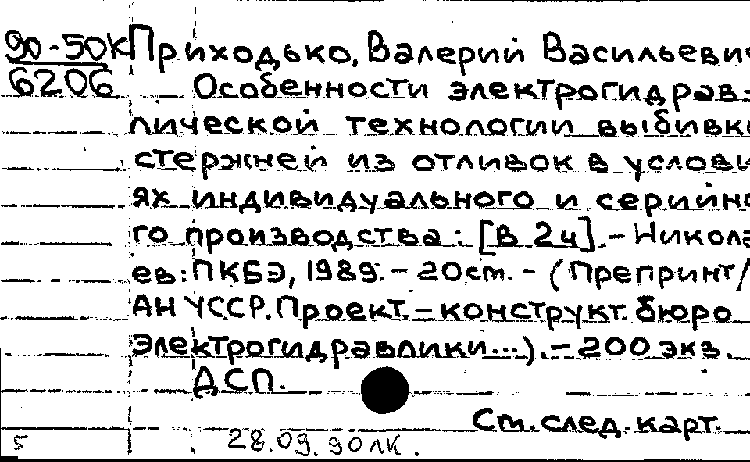 90-50К Приходько, Валерий Васильевич
6206 Особенности электрогидрав-
лической технологии выбивки
стержней из отливок в услови
ях индивидуального и серийно
го производства: [В 2ч].- Никола
ев: ПКБЭ, 1989.- 20см. - (Препринт/
АН УССР. Проект.-конструкт. бюро
электрогидравлики...).- 200 экз.
ДСП.
См. след. карт.
5 28.09.90ЛК.